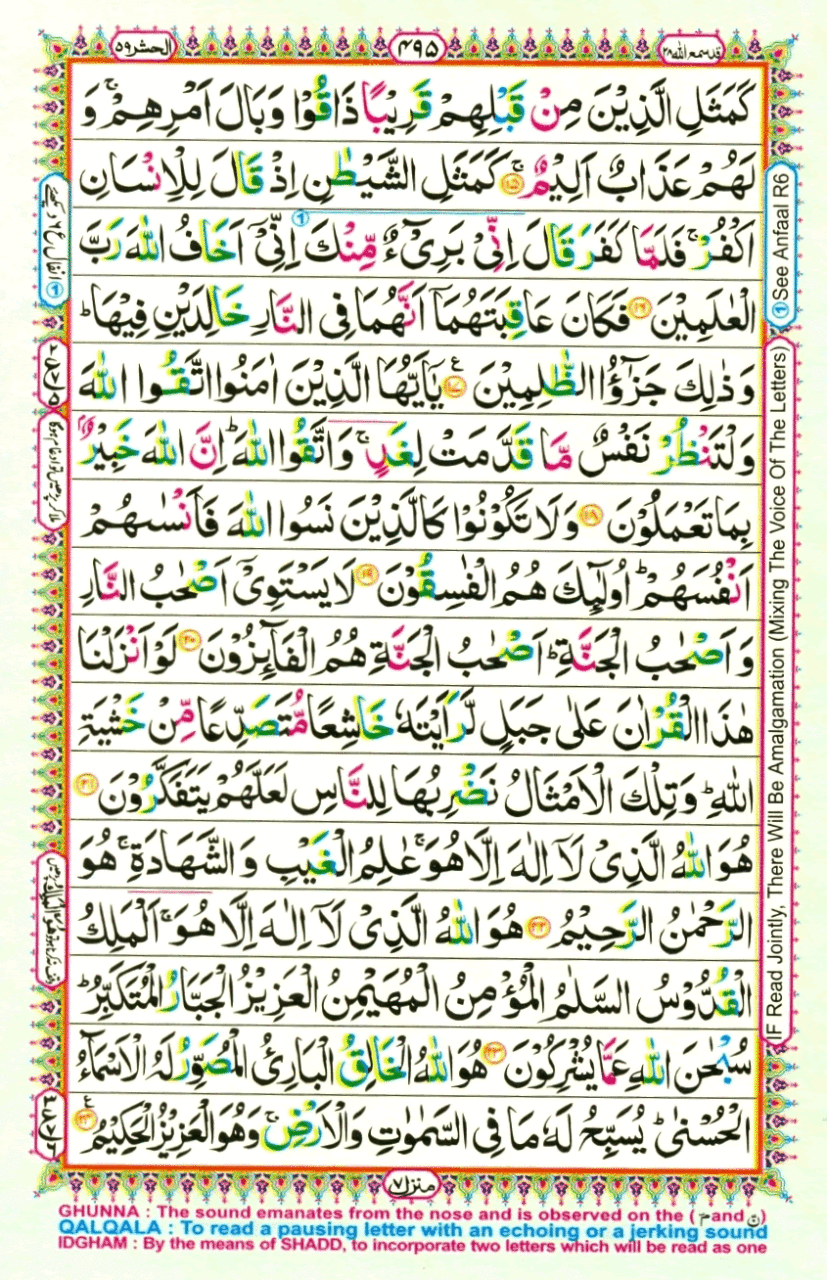 قد سمع الله ٢٨
٤٩٥
الحشر ٥٩
كَمَثَلِ الَّذِیْنَ مِنْ قَبْلِهِمْ قَرِیْبًا ذَاقُوْا وَبَالَ اَمْرِهِمْ ۚ وَ
لَهُمْ عَذَابٌ اَلِیْمٌ ۚ‏﴿۱۵﴾ كَمَثَلِ الشَّیْطٰنِ اِذْ قَالَ لِلْاِنْسَانِ
اكْفُرْ ۚ فَلَمَّا كَفَرَ قَالَ اِنِّیْ بَرِیْٓءٌ مِّنْكَ اِنِّیْۤ اَخَافُ اللّٰهَ رَبَّ
الْعٰلَمِیْنَ ﴿۱۶﴾ فَكَانَ عَاقِبَتَهُمَاۤ اَنَّهُمَا فِی النَّارِ خَالِدَیْنِ فِیْهَا ؕ
وَذٰلِكَ جَزٰٓؤُا الظّٰلِمِیْنَ ﴿۱۷﴾ ع یٰۤاَیُّهَا الَّذِیْنَ اٰمَنُوا اتَّقُوا اللّٰهَ
وَلْتَنْظُرْ نَفْسٌ مَّا قَدَّمَتْ لِغَدٍ ۚ وَاتَّقُوا اللّٰهَ ؕ اِنَّ اللّٰهَ خَبِیْرٌۢ
بِمَا تَعْمَلُوْنَ ﴿۱۸﴾ وَلَا تَكُوْنُوْا كَالَّذِیْنَ نَسُوا اللّٰهَ فَاَنْسٰىهُمْ
اَنْفُسَهُمْ ؕ اُولٰٓئِكَ هُمُ الْفٰسِقُوْنَ ﴿۱۹﴾ لَا یَسْتَوِیْۤ اَصْحٰبُ النَّارِ
وَاَصْحٰبُ الْجَنَّةِ ؕ اَصْحٰبُ الْجَنَّةِ هُمُ الْفَآئِزُوْنَ ﴿۲۰﴾ لَوْ اَنْزَلْنَا
هٰذَا الْقُرْاٰنَ عَلٰی جَبَلٍ لَّرَاَیْتَهٗ خَاشِعًا مُّتَصَدِّعًا مِّنْ خَشْیَةِ
اللّٰهِ ؕ وَتِلْكَ الْاَمْثَالُ نَضْرِبُهَا لِلنَّاسِ لَعَلَّهُمْ یَتَفَكَّرُوْنَ ﴿۲۱﴾
هُوَ اللّٰهُ الَّذِیْ لَاۤ اِلٰهَ اِلَّا هُوَ ۚ عٰلِمُ الْغَیْبِ وَالشَّهَادَةِ ۚ هُوَ
الرَّحْمٰنُ الرَّحِیْمُ ﴿۲۲﴾ هُوَ اللّٰهُ الَّذِیْ لَاۤ اِلٰهَ اِلَّا هُوَ ۚ اَلْمَلِكُ
الْقُدُّوْسُ السَّلٰمُ الْمُؤْمِنُ الْمُهَیْمِنُ الْعَزِیْزُ الْجَبَّارُ الْمُتَكَبِّرُ ؕ
سُبْحٰنَ اللّٰهِ عَمَّا یُشْرِكُوْنَ ﴿۲۳﴾ هُوَ اللّٰهُ الْخَالِقُ الْبَارِئُ الْمُصَوِّرُ لَهُ الْاَسْمَآءُ
الْحُسْنٰی ؕ یُسَبِّحُ لَهٗ مَا فِی السَّمٰوٰتِ وَالْاَرْضِ ۚ وَهُوَ الْعَزِیْزُ الْحَكِیْمُ ﴿۲۴﴾
منزل ٧
① See Anfaal R6
(IF Read Jointly, There Will Be Amalgamation (Mixing The Voice Of The Letters)
① انفال ع ٦ دیکھئے
GHUNNA : The sound emanates from the nose and is observed on the (م and ن)
QALQALA : To read a pausing letter with an echoing or a jerking sound
IDGHAM : By the means of SHADD, to incorporate two letters which will be read as one